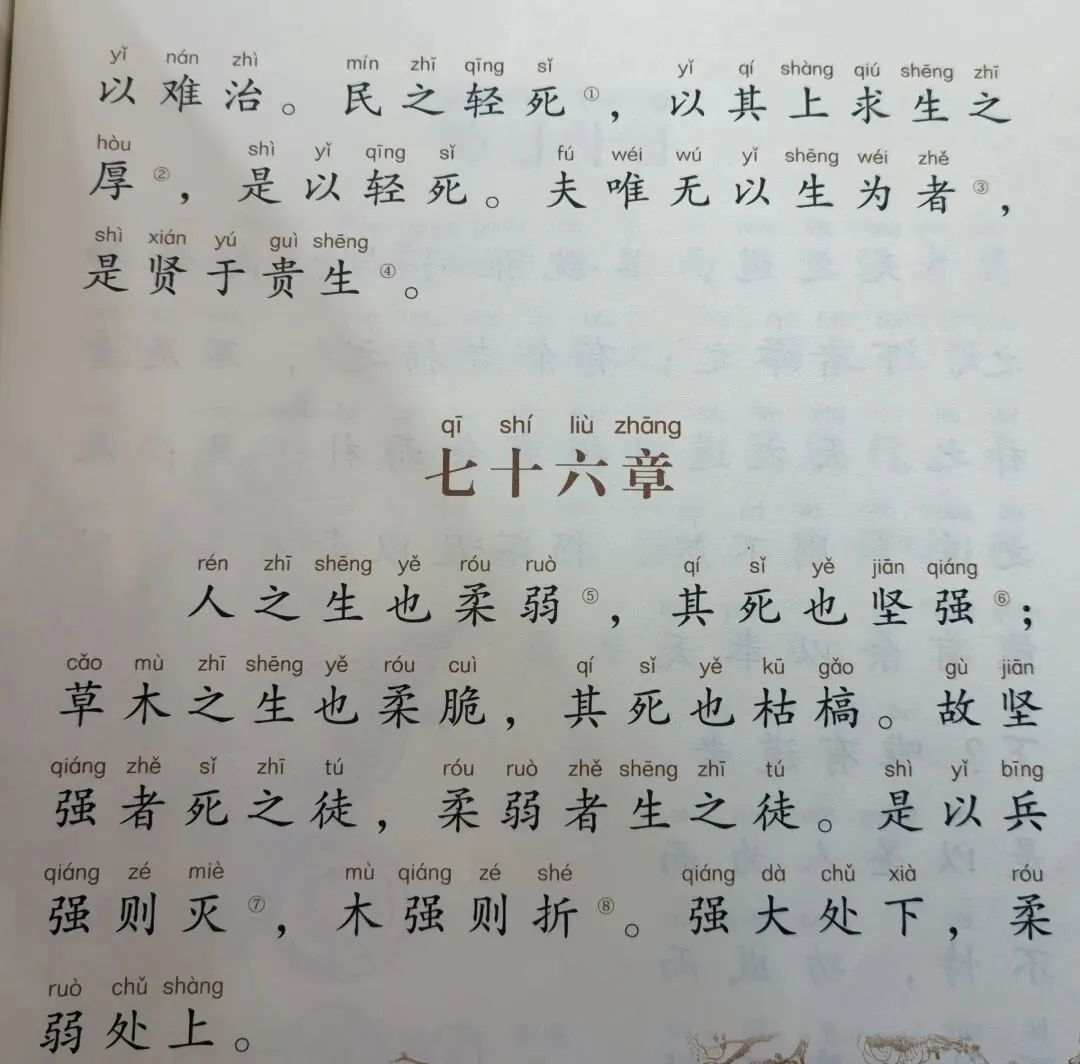 yǐ nán zhì mín zhī qīng sǐ yǐ qí shàng qiú shēng zhī
以难治。民之轻死①，以其上求生之
hòu shì yǐ qīng sǐ fú wéi wú yǐ shēng wéi zhě
厚②，是以轻死。夫唯无以生为者③，
shì xián yú guì shēng
是贤于贵生④。
qī shí liù zhāng
七十六章
rén zhī shēng yě róu ruò qí sǐ yě jiān qiáng
人之生也柔弱⑤，其死也坚强⑥；
cǎo mù zhī shēng yě róu cuì qí sǐ yě kū gǎo gù jiān
草木之生也柔脆，其死也枯槁。故坚
qiáng zhě sǐ zhī tú róu ruò zhě shēng zhī tú shì yǐ bīng
强者死之徒，柔弱者生之徒。是以兵
qiáng zé miè mù qiáng zé shé qiáng dà chǔ xià róu
强则灭⑦，木强则折⑧。强大处下，柔
ruò chǔ shàng
弱处上。